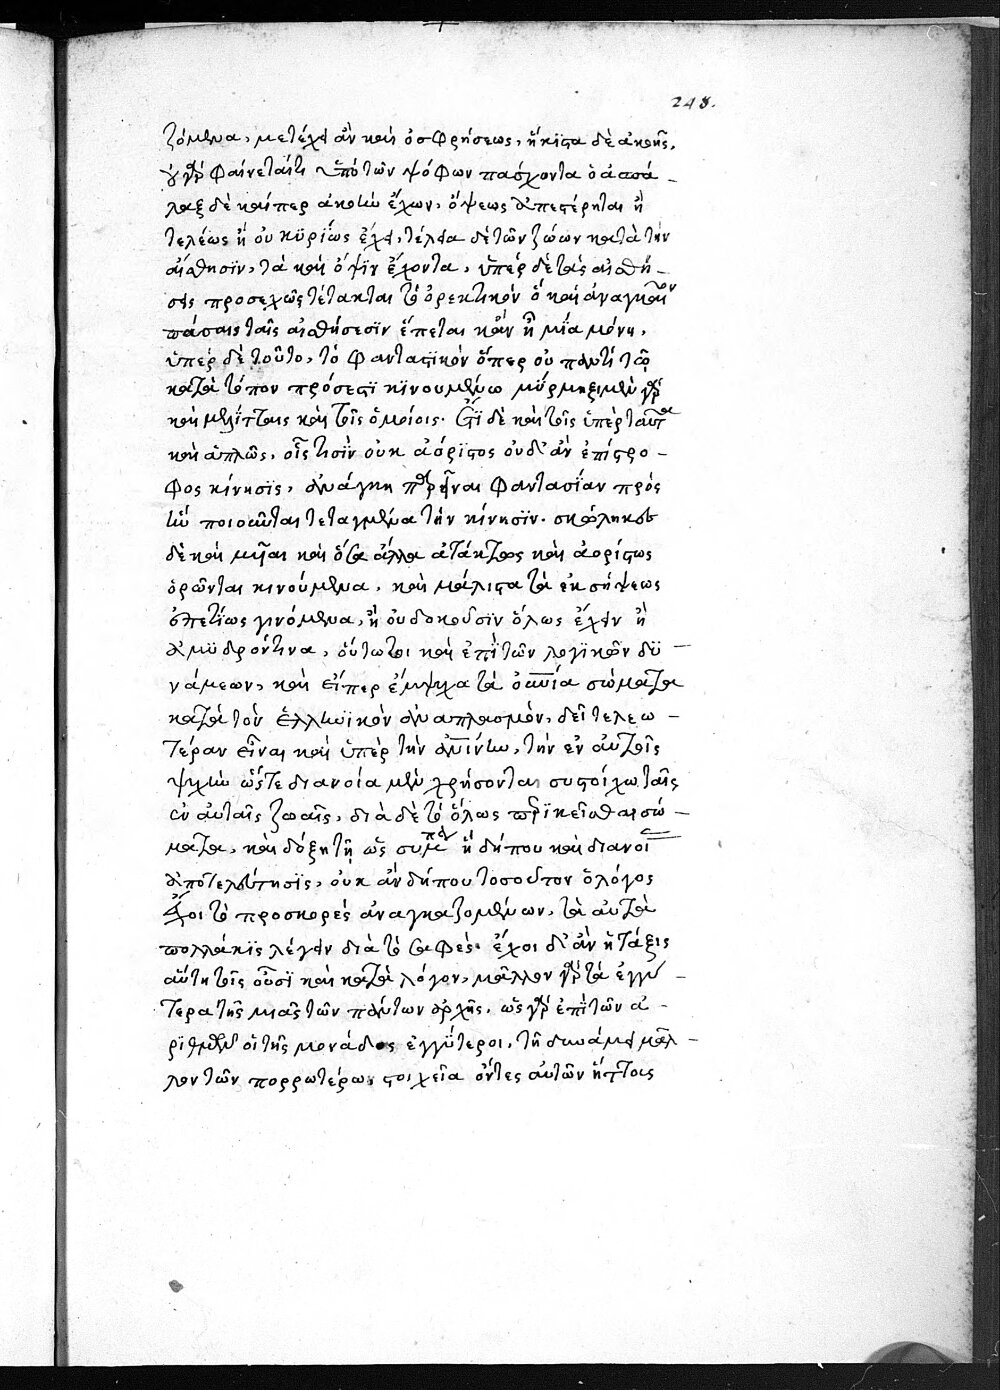 248.
ζόμενα, μετέχει ἂν καὶ ὀσφρήσεως, ἥκιστα δὲ ἀκοῆς,
οὐ γὰρ φαίνεταί τι ὑπὸ τῶν ψόφων πάσχοντα ὁ ἀσπά-
λαξ δὲ καίπερ ἀκοὴν ἔχων, ὄψεως ἀπεστέρηται ἢ
τελέως ἢ οὐ κυρίως ἔχει, τέλεια δὲ τῶν ζώων κατὰ τὴν
αἴσθησϊν, τὰ καὶ ὄψϊν ἔχοντα, ὑπὲρ δὲ τὰς αἰσθή-
σεις προσεχῶς τέτακται τὸ ὀρεκτικὸν ὃ καὶ ἀναγκαῖον
πάσαις ταῖς αἰσθήσεσϊν ἕπεται κἂν ἢ μία μόνη,
ὑπὲρ δὲ τοῦτο, τὸ φανταστικὸν ὅπερ οὐ παντὶ τῶ
κατὰ τόπον πρόσεστϊ κϊνουμένω μύρμηξι μὲν γὰρ
καὶ μελίτταις καὶ τοῖς ὁμοίοις. ἔτϊ δὲ καὶ τοῖς ὑπὲρ ταῦτα
καὶ ἁπλῶς, οἷς τισϊν οὐκ ἀόριστος οὐδ' ἂν ἐπίστρο-
φος κίνησϊς, ἀνάγκη παρεῖναι φαντασίαν πρὸς
ἣν ποιοῦνται τεταγμένα τὴν κίνησϊν. σκώληκες
δὲ καὶ μυῖαι καὶ ὅσα ἄλλα ἀτάκτως καὶ ἀορίστως
ὁρῶνται κινούμενα, καὶ μάλιστα τὰ ἐκ σήψεως
ἐπετίως γινόμενα, ἢ οὐ δοκοῦσϊν ὅλως ἔχειν ἢ
ἀμυδρόν τινα, οὕτω τοι καὶ ἐπὶ τῶν λογικῶν δϋ-
νάμεων, καὶ εἴπερ ἔμψυχα τὰ οὐνία σώματα
κατὰ τὸν ἑλληνϊκὸν ἀναπλασμὸν, δεῖ τελεω-
τέραν εἶναι καὶ ὑπὲρ τὴν ἀνίνην, τὴν ἐν αὐτοῖς
ψυχὴν ὥστε διανοία μὲν χρήσονται συστοίχω ταῖς
ἐν αὐταῖς ζωαῖς, διὰ δὲ τὸ ὅλως περϊκεῖσθαι σώ-
ματα, καὶ δόξη τῆ ὡς συμπ ἢ δήπου καὶ διανοί
ἀποτελεύτησϊς, οὐκ ἂν δήπου τοσοῦτον ὁ λόγος
ἔχοι τὸ προσκορὲς ἀναγκαζομένων, τὰ αὐτὰ
πολλάκϊς λέγειν διὰ τὸ σαφές. ἔχοι δ' ἂν ἡ τάξις
αὕτη τοῖς οὖσϊ καὶ κατὰ λόγον, μᾶλλον γὰρ τὰ ἐγγυ-
τέρα τῆς μιᾶς τῶν πάντων ἀρχῆς, ὡς γὰρ ἐπὶ τῶν ἀ-
ρϊθμῶν οἱ τῆς μονάδος ἐγγύτεροι, τῆ δυνάμει μᾶλ-
λον τῶν πορρωτέρω, στοιχεῖα ὄντες αὐτῶν ἥττοις